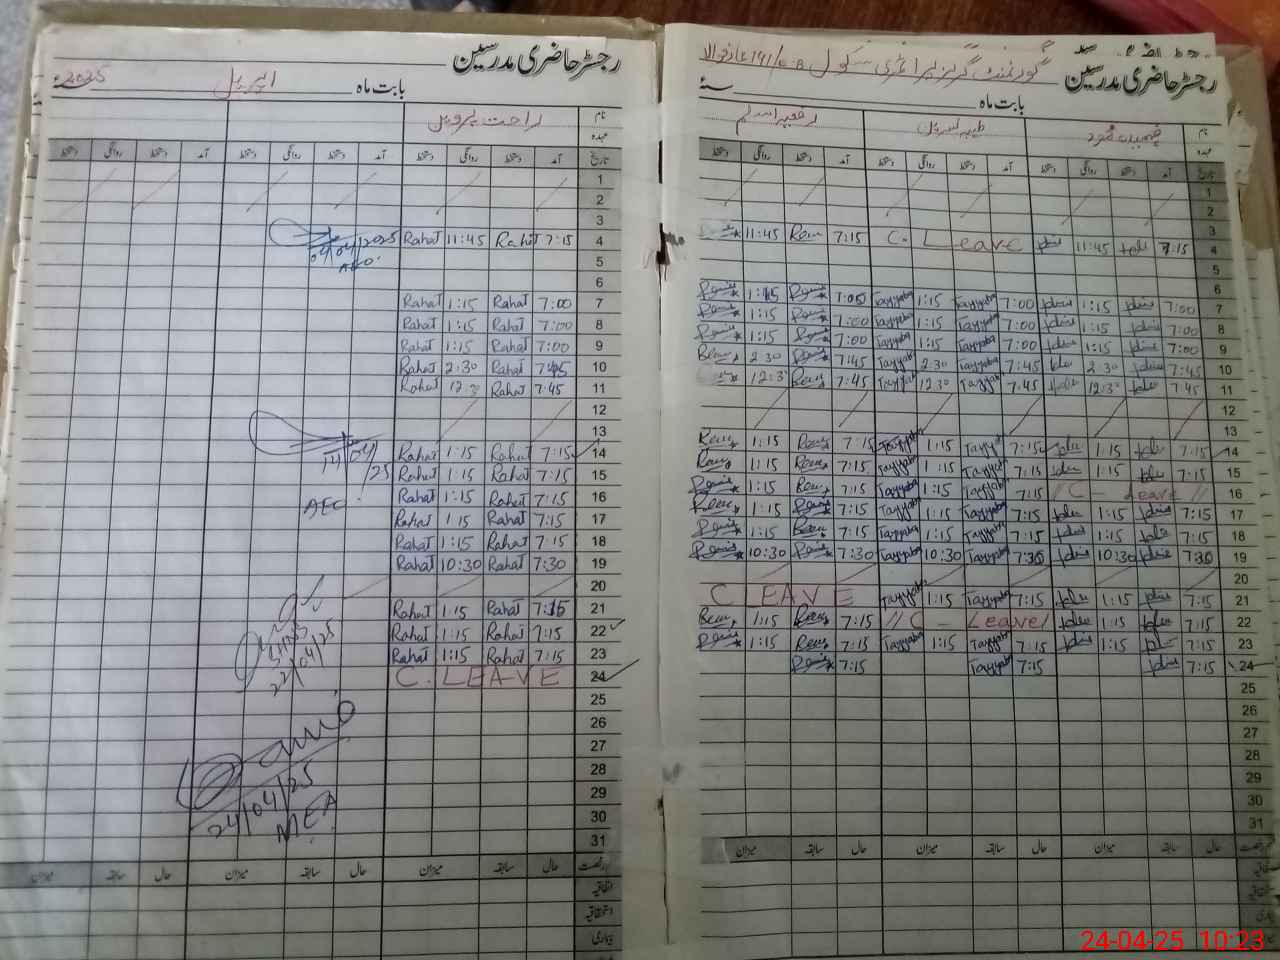 رجسٹر حاضری مدرسین
گورنمنٹ گرلز پرائمری سکول 141/E.B
بابت ماہ ـــــ سنہ
نام رقیہ اسلم
عہدہ
تاریخ آمد دستخط روانگی دستخط آمد دستخط روانگی دستخط آمد دستخط روانگی دستخط
1
2
3
4 7:15 11:45 C. Leave 7:15 11:45
5
6
7 7:00 1:15 Tayyaba 7:00 Tayyaba 1:15 7:00 1:15
8 7:00 1:15 Tayyaba 7:00 Tayyaba 1:15 7:00 1:15
9 7:00 1:15 Tayyaba 7:00 Tayyaba 1:15 7:00 1:15
10 7:45 2:30 Tayyaba 7:45 Tayyaba 2:30 7:45 2:30
11 7:45 12:30 Tayyaba 7:45 Tayyaba 12:30 7:45 12:3
12
13
14 7:15 1:15 Tayyaba 7:15 Tayyaba 1:15 7:15 1:15
15 7:15 1:15 Tayyaba 7:15 Tayyaba 1:15 7:15 1:15
16 // C - Leave // Tayyaba 7:15 Tayyaba 1:15 7:15 1:15
17 7:15 1:15 Tayyaba 7:15 Tayyaba 1:15 7:15 1:15
18 7:15 1:15 Tayyaba 7:15 Tayyaba 1:15 7:15 1:15
19 7:30 10:30 Tayyaba 7:30 Tayyaba 10:30 7:30 10:30
20
21 7:15 1:15 Tayyaba 7:15 Tayyaba 1:15 C LEAVE
22 7:15 1:15 // C - Leave/ 7:15 1:15
23 7:15 1:15 Tayyaba 7:15 Tayyaba 1:15 7:15 1:15
24 7:15 Tayyaba 7:15 7:15
25
26
27
28
29
30
31
حال سابقہ میزان حال سابقہ میزان حال سابقہ میزان
رجسٹر حاضری مدرسین
بابت ماہ اپریل سنہ 2025
نام راحت پروین
عہدہ
تاریخ آمد دستخط روانگی دستخط آمد دستخط روانگی دستخط آمد دستخط روانگی دستخط
1
2
3
4 7:15 Rahat 11:45 Rahat
04/04/2025
AEO.
5
6
7 7:00 Rahat 1:15 Rahat
8 7:00 Rahat 1:15 Rahat
9 7:00 Rahat 1:15 Rahat
10 7:45 Rahat 2:30 Rahat
11 7:45 Rahat 12:3 Rahat
12
13
14 7:15 Rahat 1:15 Rahat
14/04/25
AEO
15 7:15 Rahat 1:15 Rahat
16 7:15 Rahat 1:15 Rahat
17 7:15 Rahat 1:15 Rahat
18 7:15 Rahat 1:15 Rahat
19 7:30 Rahat 10:30 Rahat
20
21 7:15 Rahat 1:15 Rahat
22 7:15 Rahat 1:15 Rahat
22/04/25
23 7:15 Rahat 1:15 Rahat
24 C. LEAVE
25
26
27
28
24/04/25
MEA
29
30
31
حال سابقہ میزان حال سابقہ میزان حال سابقہ میزان
اتفاقیہ
استحقاقیہ
بیماری
24-04-25 10:23